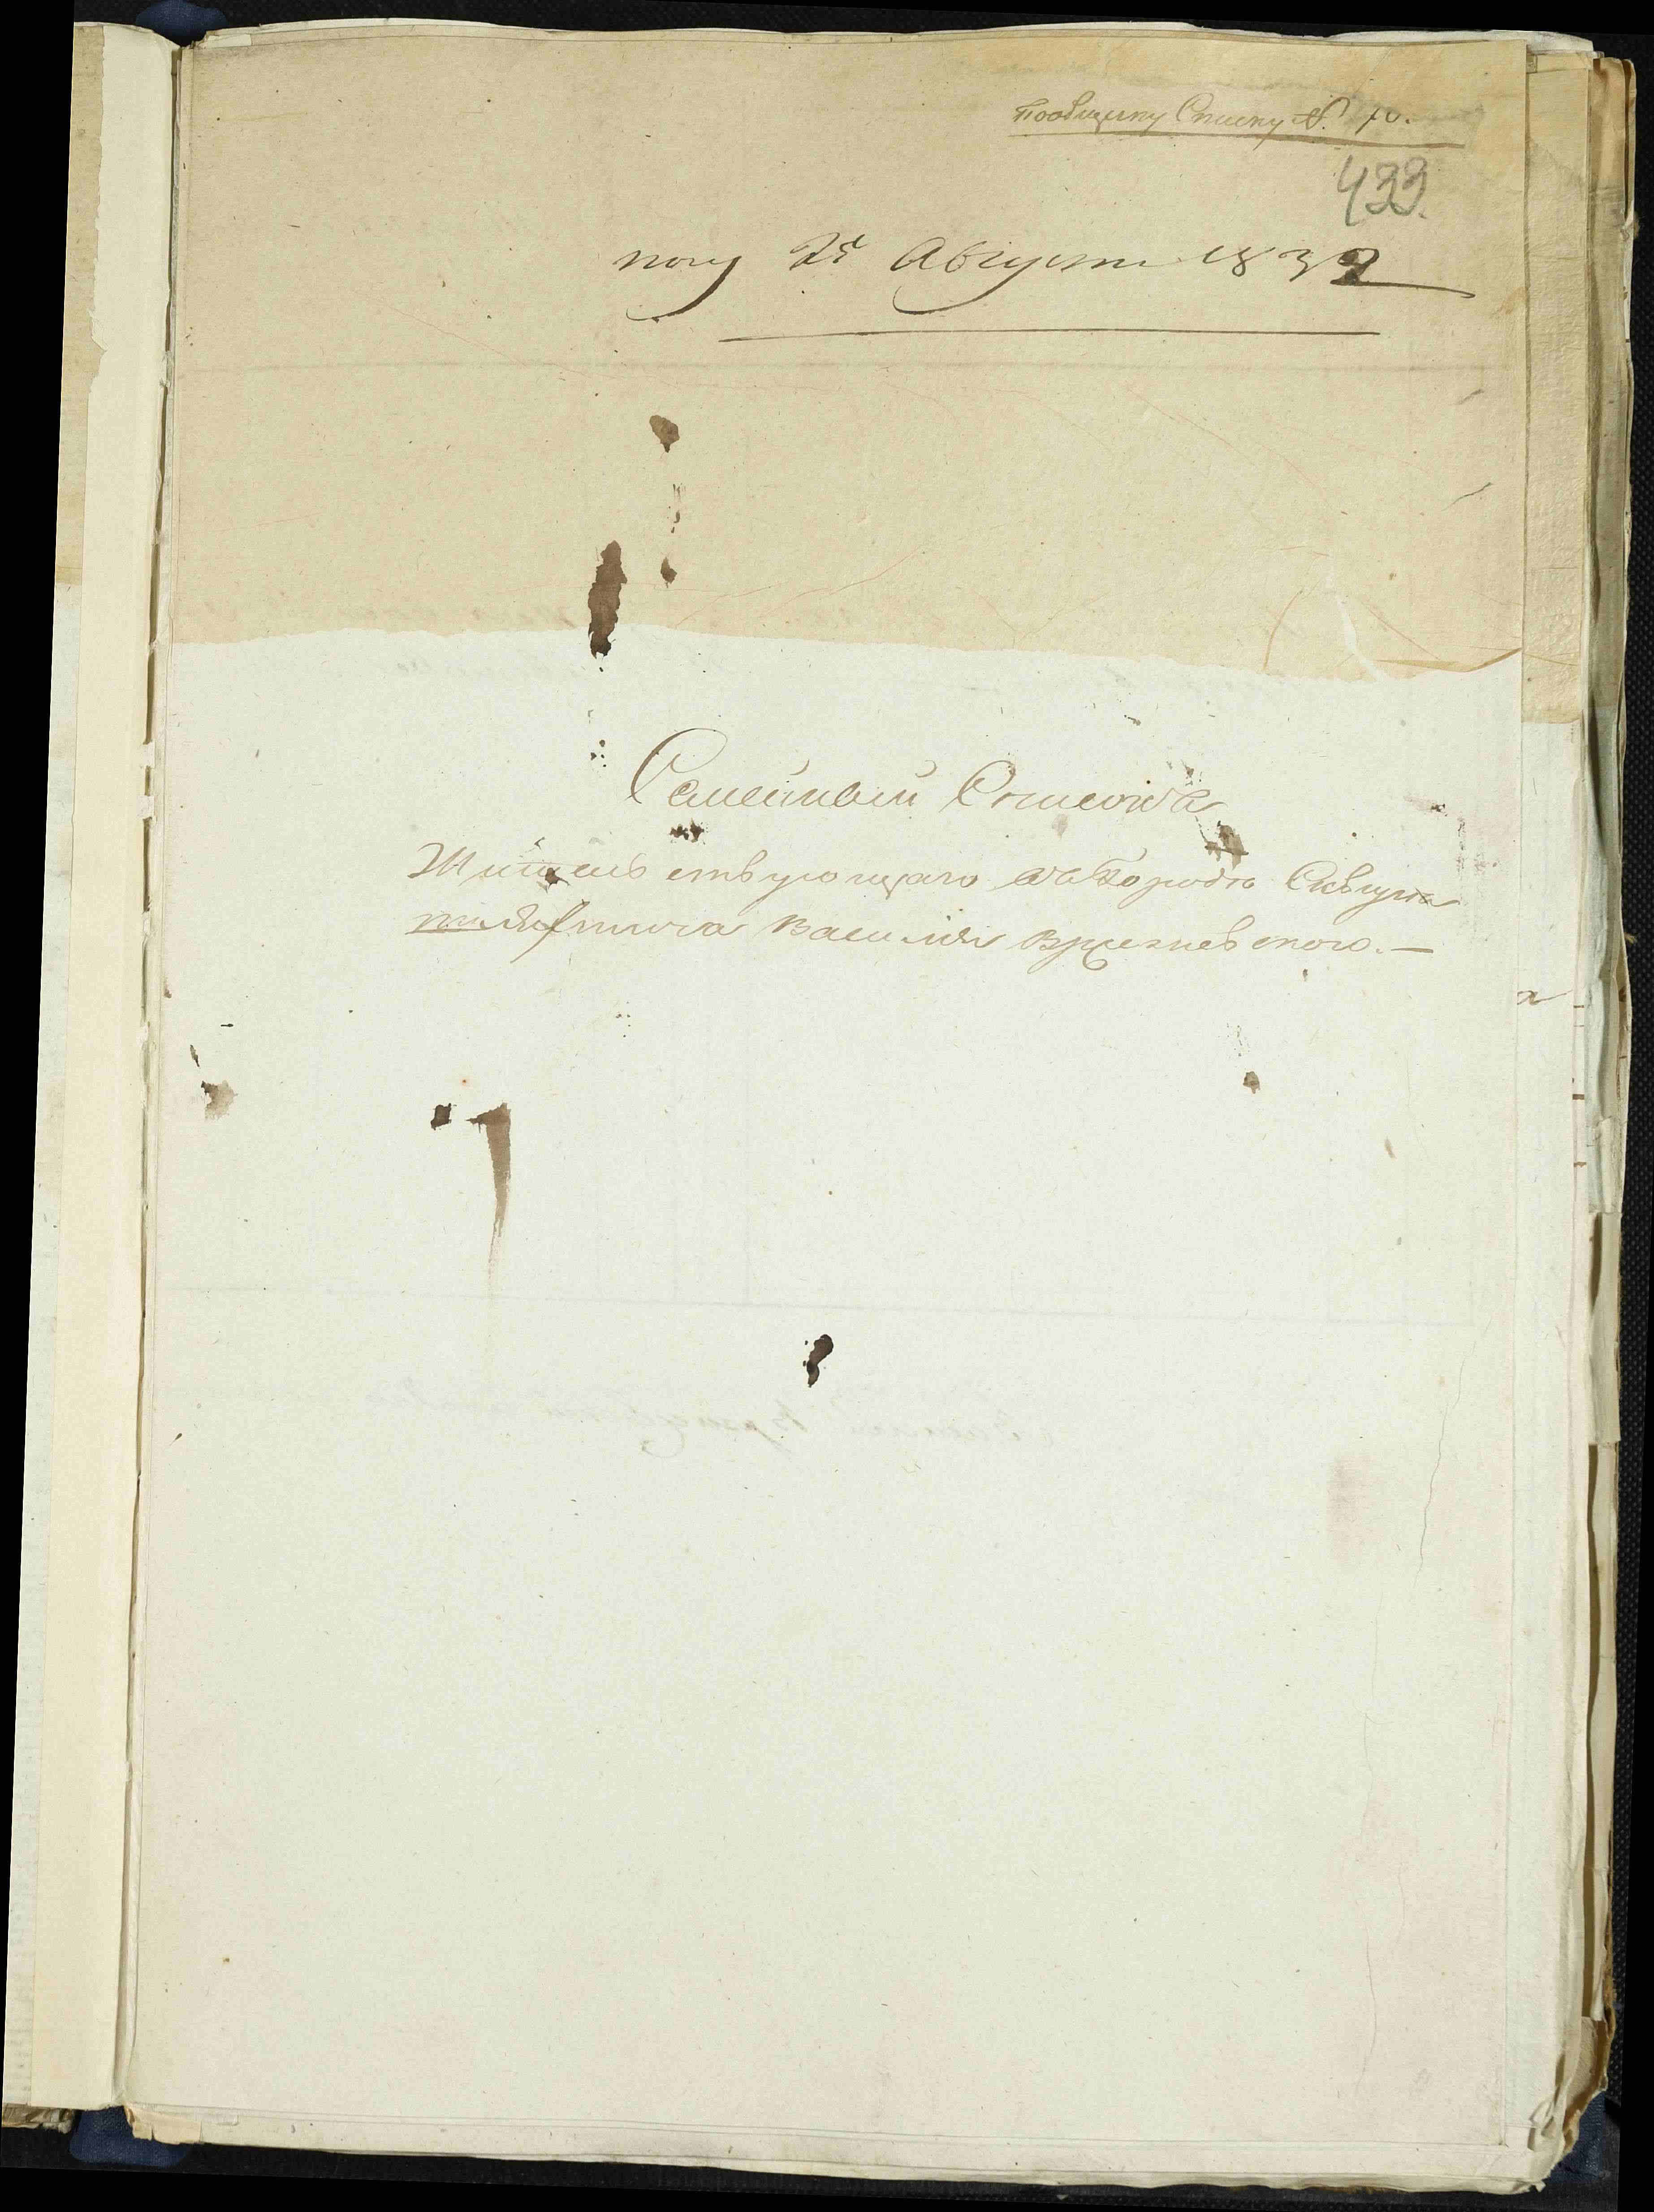 Пообщему Списку №. 70.
433.
пол 25 Августа 1832
Семейный Списокъ
Жительствующаго въ Городѣ Сквирѣ
Василія Вржезневского.—